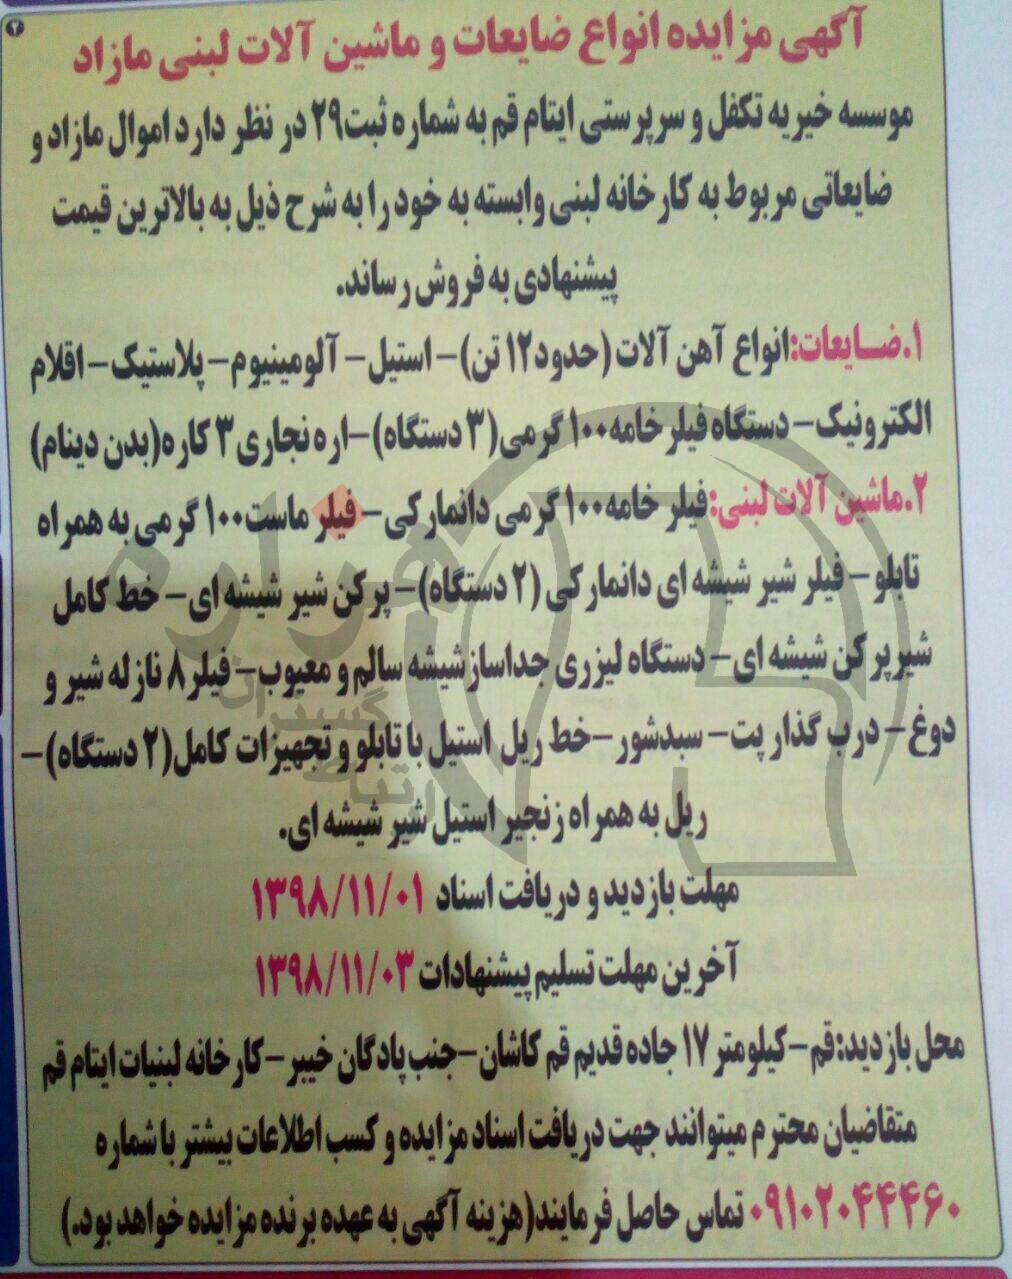 آگهی مزایده انواع ضایعات و ماشین آلات لبنی مازاد
موسسه خیریه تکفل و سرپرستی ایتام قم به شماره ثبت۲۹ در نظر دارد اموال مازاد و
ضایعاتی مربوط به کارخانه لبنی وابسته به خود را به شرح ذیل به بالاترین قیمت
پیشنهادی به فروش رساند.
۱.ضایعات:انواع آهن آلات (حدود۱۲ تن)- استیل- آلومینیوم- پلاستیک- اقلام
الکترونیک- دستگاه فیلرخامه۱۰۰ گرمی(۳ دستگاه)-اره نجاری۳ کاره(بدن دینام)
۲.ماشین آلات لبنی:فیلر خامه۱۰۰ گرمی دانمارکی- فیلر ماست۱۰۰ گرمی به همراه
تابلو- فیلر شیر شیشه ای دانمارکی (۲ دستگاه)- پرکن شیر شیشه ای- خط کامل
شیرپرکن شیشه ای- دستگاه لیزری جداساز شیشه سالم و معیوب- فیلر۸ نازله شیر و
دوغ- درب گذار پت- سبدشور-خط ریل استیل با تابلو و تجهیزات کامل(۲ دستگاه)-
ریل به همراه زنجیر استیل شیر شیشه ای.
مهلت بازدید و دریافت اسناد ۱۳۹۸/۱۱/۰۱
آخرین مهلت تسلیم پیشنهادات ۱۳۹۸/۱۱/۰۳
محل بازدید:قم-کیلومتر ۱۷ جاده قدیم قم کاشان-جنب پادگان خیبر-کارخانه لبنیات ایتام قم
متقاضیان محترم میتوانند جهت دریافت اسناد مزایده و کسب اطلاعات بیشتر با شماره
۰۹۱۰۲۰۴۴۴۶۰ تماس حاصل فرمایند(هزینه آگهی به عهده برنده مزایده خواهد بود.)
هزاره